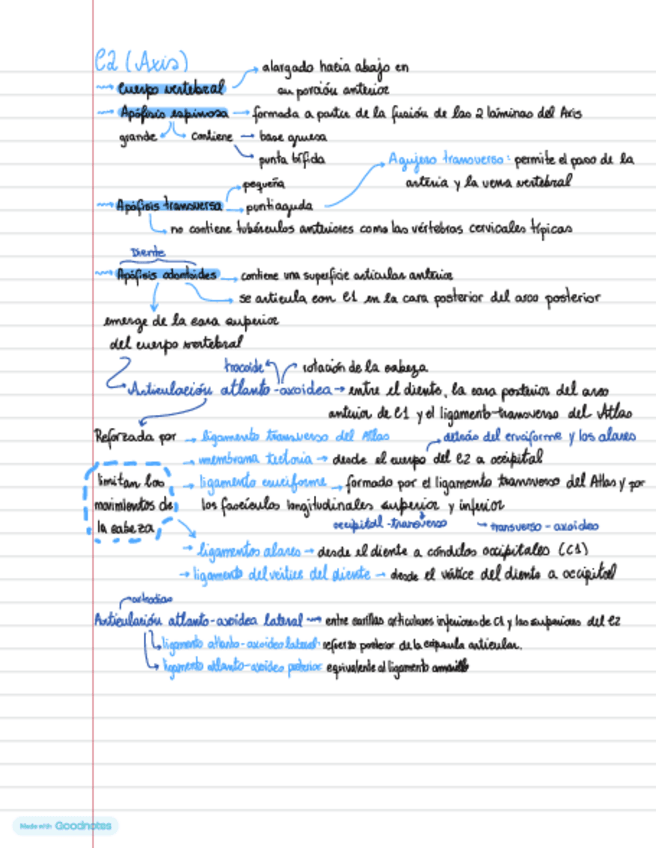 C2 (Axis)
Cuerpo vertebral → alargado hacia abajo en
su porción anterior
Apófisis espinosa → formada a partir de la fusión de las 2 láminas del Axis
grande contiene → base gruesa
punta bífida
Agujero transverso: permite el paso de la
arteria y la vena vertebral
pequeña
Apófisis transversa → puntiaguda
no contiene tubérculos anteriores como las vértebras cervicales típicas
Diente
Apófisis odontoides → contiene una superficie articular anterior
se articula con C1 en la cara posterior del arco posterior
emerge de la cara superior
del cuerpo vertebral
trocoide rotación de la cabeza
Articulación atlanto-axoidea → entre el diente, la cara posterior del arco
anterior de C1 y el ligamento transverso del Atlas
Reforzada por → ligamento transverso del Atlas
detrás del cruciforme y los alares
membrana tectoria → desde el cuerpo del C2 a occipital
limitan los
movimientos de
la cabeza
ligamento cruciforme → formado por el ligamento transverso del Atlas y por
los fascículos longitudinales superior y inferior
occipital-transverso transverso-axoideo
ligamentos alares → desde el diente a cóndilos occipitales (C1)
ligamento del vértice del diente → desde el vértice del diente a occipital
artrodias
Articulación atlanto-axoidea lateral → entre carillas articulares inferiores de C1 y las superiores del C2
ligamento atlanto-axoideo lateral: refuerzo posterior de la cápsula articular.
ligamento atlanto-axoideo posterior equivalente al ligamento amarillo
Made with Goodnotes